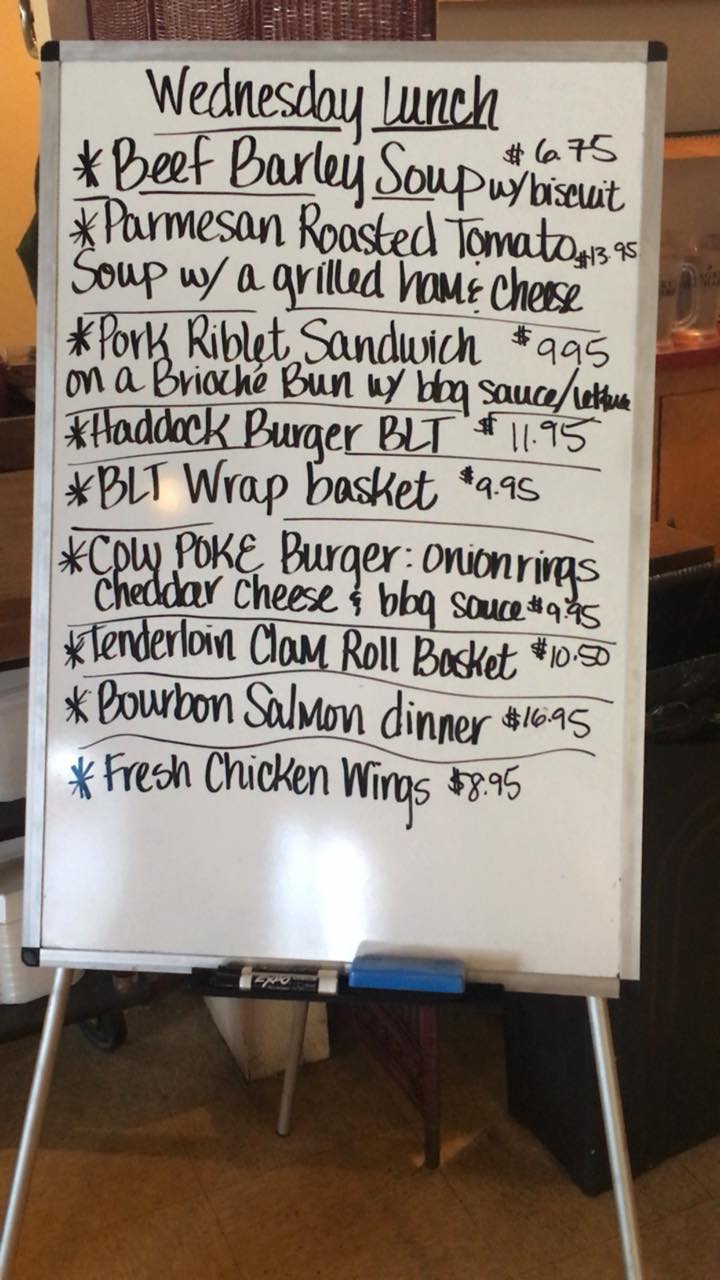 Wednesday Lunch
* Beef Barley Soup $6.75
w/biscuit
* Parmesan Roasted Tomato $13.95
Soup w/ a grilled ham & cheese
* Pork Riblet Sandwich $995
on a Brioche Bun w/ bbq sauce/lettuce
* Haddock Burger BLT $11.95
* BLT Wrap basket $9.95
* Cow POKE Burger: onion rings
cheddar cheese & bbq sauce $9.95
* Tenderloin Clam Roll Basket $10.50
* Bourbon Salmon dinner $16.95
* Fresh Chicken Wings $8.95
EXPO